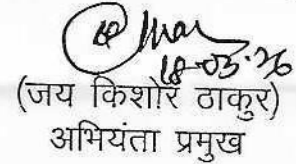 18-03-26
(जय किशोर ठाकुर)
अभियंता प्रमुख